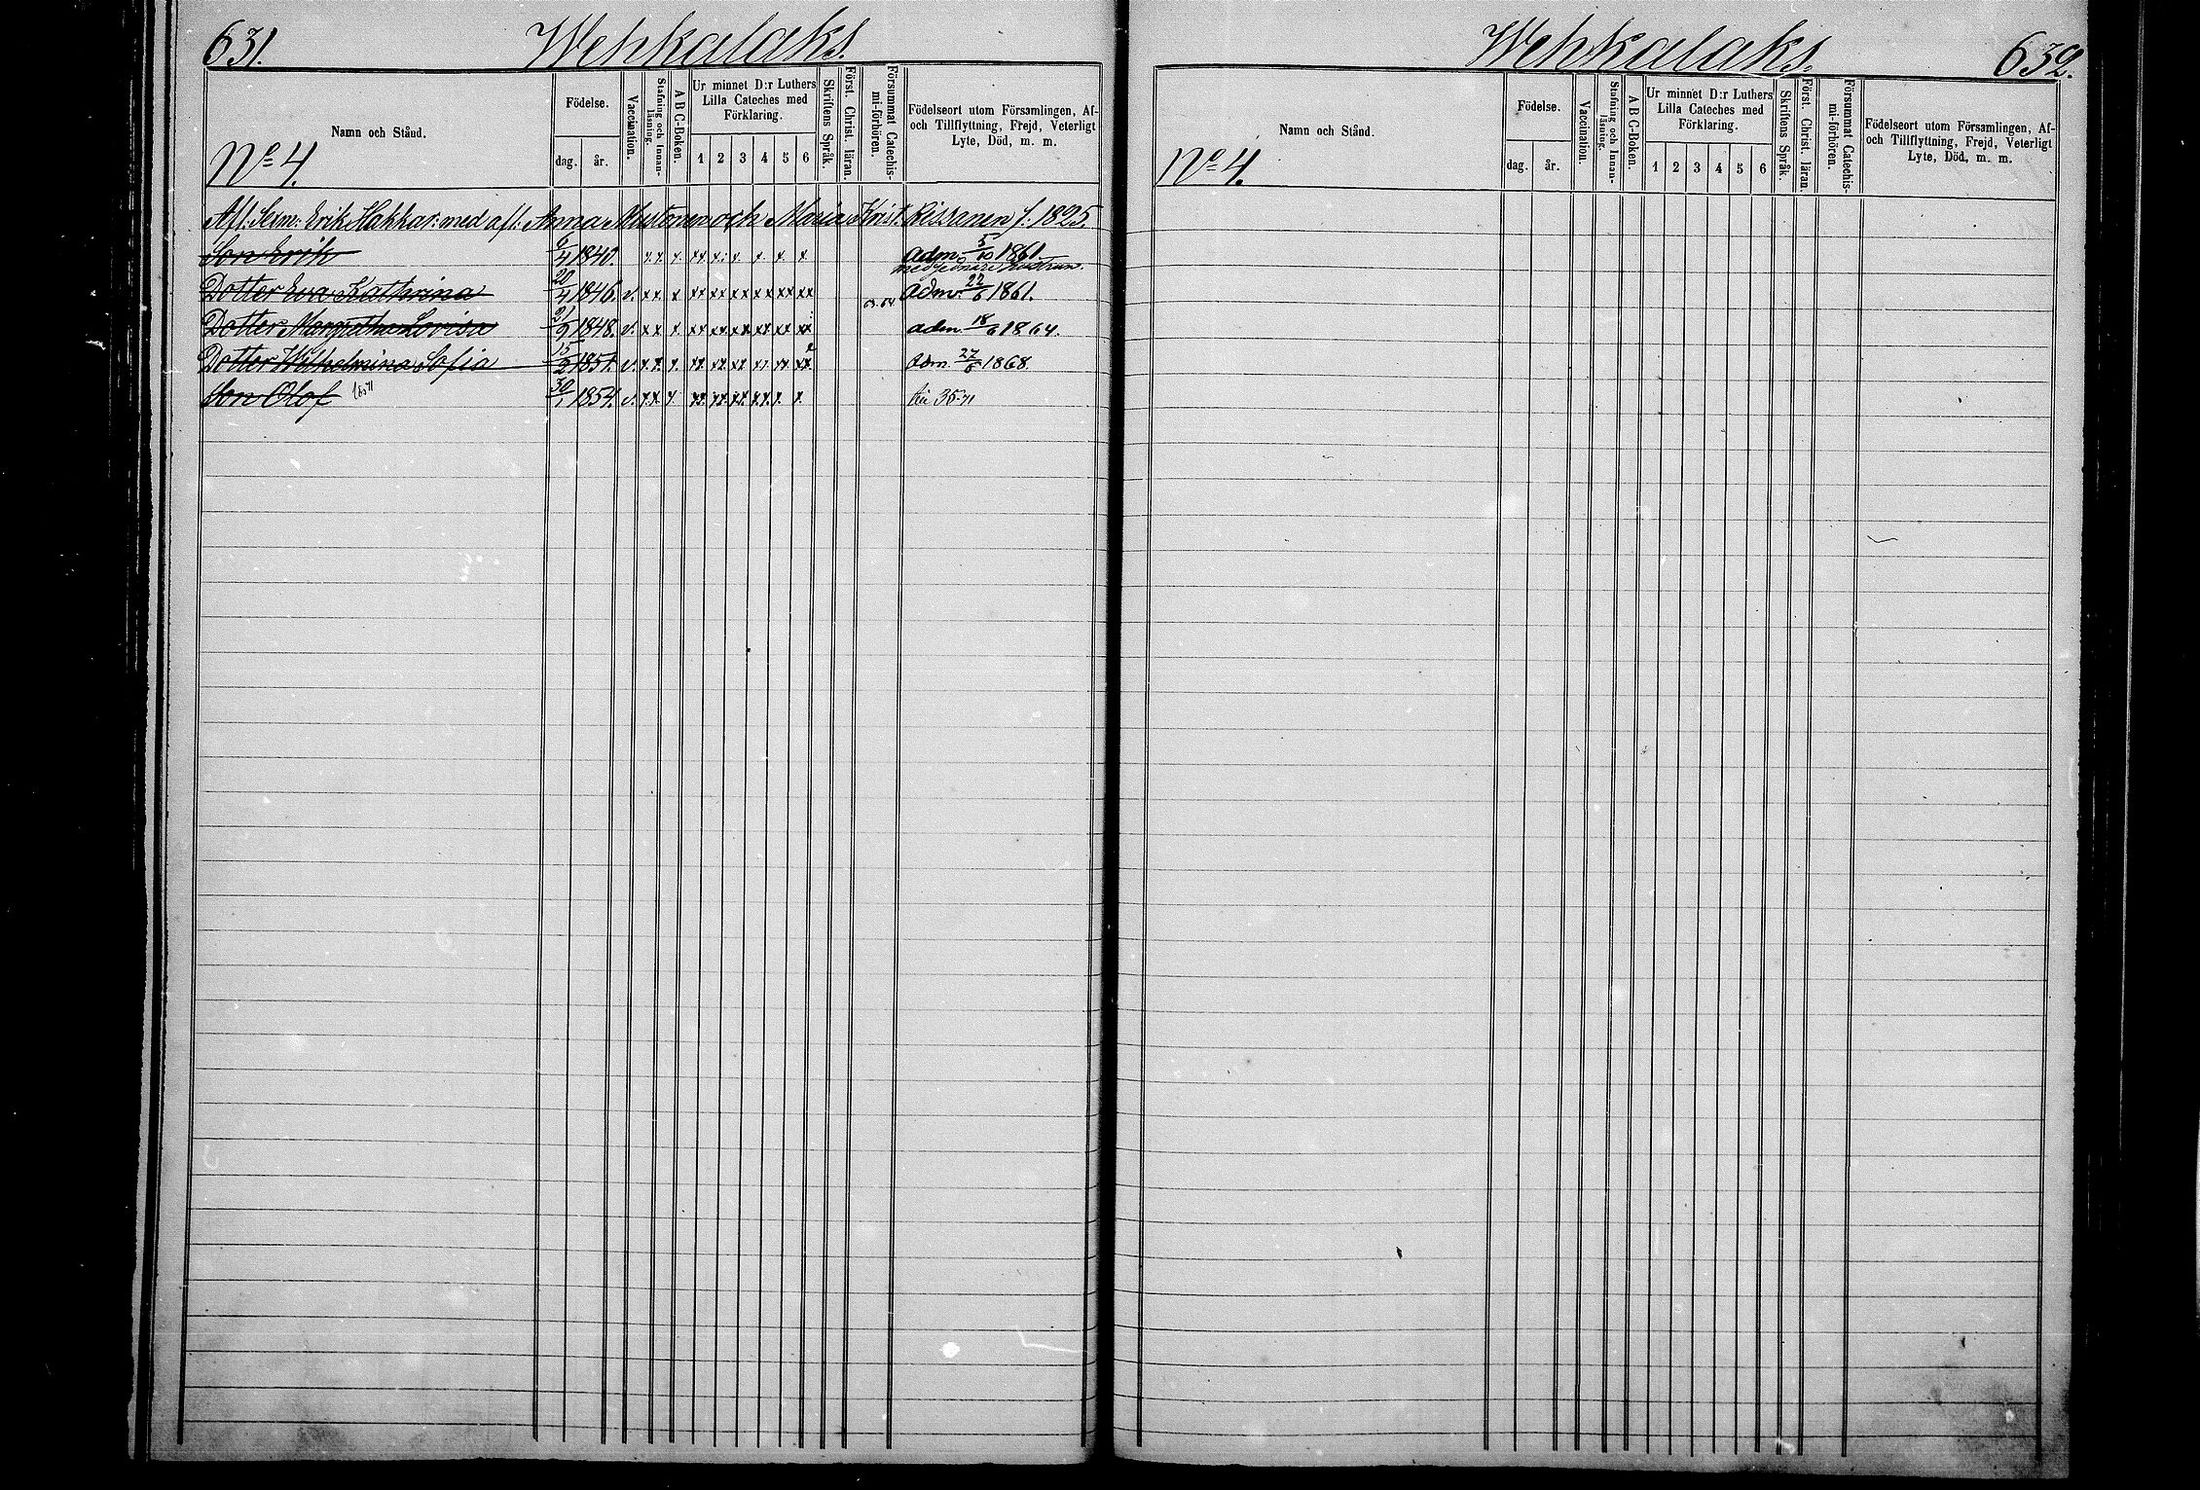 631. Wehkalaks.
Namn och Stånd.
Nº 4.
Födelse.
dag. år.
Vaccination.
Stafning och Innan-
läsning.
A B C-Boken.
Ur minnet D:r Luthers
Lilla Cateches med
Förklaring.
1 2 3 4 5 6
Skriftens Språk.
Först. Christ. läran.
Försummat Catechis-
mi-förhören.
Födelseort utom Församlingen, Af-
och Tillflyttning, Frejd, Veterligt
Lyte, Död, m. m.
Afl: Erik Hakkar: med afl: Anna Mustonen och Maria Krist. Rissanen f. 1825.
Son Erik 6/4 1840. x x x xx x x x x x adm. 5/10 1861.
Dotter Eva Kathrina 20/4 1846. v. xx x xx xx xx xx xx xx 63.64 adm. 22/6 1861.
Dotter Margretha Lovisa 21/9 1848. v. xx x xx xx xx xx xx xx adm. 18/6 1864.
Dotter Wilhelmina Sofia 15/2 1851. v. xx x xx xx xx xx xx xx adm. 27/6 1868.
Son Olof 30/1 1854. v. xx x xx xx xx xx x x
Wehkalaks. 632.
Namn och Stånd.
Nº 4.
Födelse.
dag. år.
Vaccination.
Stafning och Innan-
läsning.
A B C-Boken.
Ur minnet D:r Luthers
Lilla Cateches med
Förklaring.
1 2 3 4 5 6
Skriftens Språk.
Först. Christ. läran.
Försummat Catechis-
mi-förhören.
Födelseort utom Församlingen, Af-
och Tillflyttning, Frejd, Veterligt
Lyte, Död, m. m.